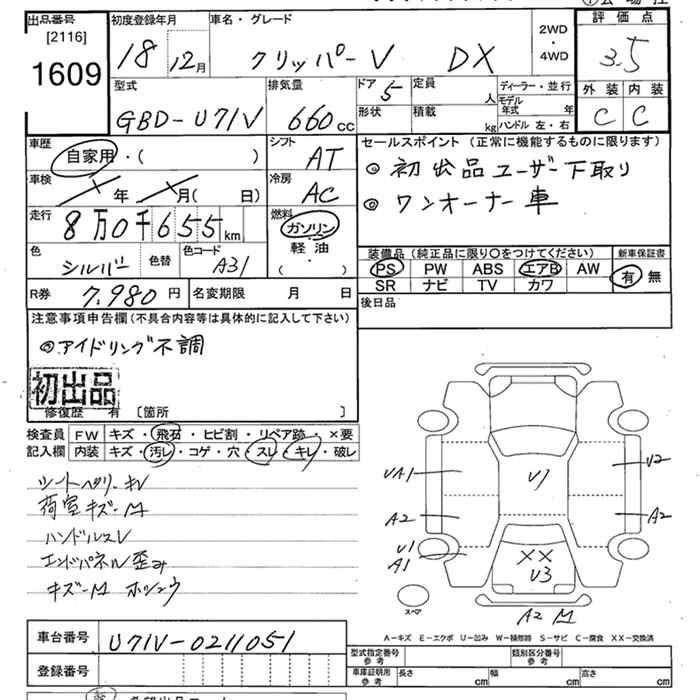 出品番号 初度登録年月 車名・グレード 2WD・4WD 評価点
[2116]
1609 18年 12月 クリッパーV DX 3.5
型式 排気量 ドア 5 定員 人 ディーラー・並行 外装 内装
GBD-U71V 660cc 形状 積載 kg モデル年式 年 ハンドル 左・右 C C
車歴 自家用・( ) シフト AT セールスポイント(正常に機能するものに限ります)
◎初出品ユーザー下取り
車検 年 月( 日) 冷房 AC
◎ワンオーナー車
走行 8万0千655km 燃料 ガソリン
軽油
( ・ )
色 シルバー 色替 色コード A31
装備品(純正品に限り○をつけてください) 新車保証書
PS PW ABS エアB AW 有・無
SR ナビ TV カワ
R券 7,980円 名変期限 月 日
後日品
注意事項申告欄(不具合内容等は具体的に記入して下さい)
◎アイドリング不調
初出品
修復歴 有 〔箇所 〕
検査員 FW キズ・飛石・ヒビ割・リペア跡・×要
記入欄 内装 キズ・汚レ・コゲ・穴・スレ・キレ・破レ
荷室キズ-M
ハンドルスレ
エンドパネル歪み
UA1
A2
U1
A1
U1
U2
A2
XX
U3
A2
M
スペア
A-キズ E-エクボ U-凹み W-補修跡 S-サビ C-腐食 XX-交換済
車台番号 U71V-0211051
登録番号
型式指定番号 参考 類別区分番号 参考
車庫証明用 参考 長さ cm 幅 cm 高さ cm